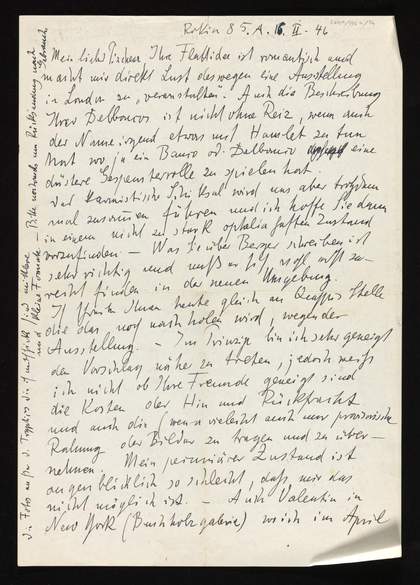 Rokin 85. A. 16. II. 46
Mein lieber Ihre Flattider ist romantisch und
macht mir direkt Lust deswegen eine Ausstellung
in London zu „veranstalten“. Auch die Beschreibung
Ihres Delboncos ist nicht ohne Reiz, wenn auch
der Name irgend etwas mit Hamlet zu tun
hat wo ja ein Banco od. Delbonco eine
düstere Gespensterrolle zu spielen hat.
Das Schiksal wird uns aber trotzdem
mal zusammen führen und ich hoffe Sie dann
in einem nicht zu stark ophelia haften Zustand
vorzufinden – Was Sie über schreiben ist
sehr richtig und muß er sich wohl erst zu-
recht finden in der neuen Umgebung.
Ich schreibe Ihnen heute gleich an Stelle
die das noch nach holen wird, wegen der
Ausstellung. – Im Prinzip bin ich sehr geneigt
den Vorschlag näher zu treten, jedoch weiß
ich nicht ob Ihre Freunde geneigt sind
die Kosten der Hin und Rückfracht
und auch die (wenn vieleicht auch nur provisorische
Rahmung der Bilder zu tragen und zu über-
nehmen. Mein pecuniärer Zustand ist
augenblicklich so schlecht, daß mir das
nicht möglich ist. – Auch Valentin in
New York (Buchholzgalerie) wo ich im April
Die Fotos sind mittlere
und kleine Formate – Bitte um Rücksendung nach
Gebrauch